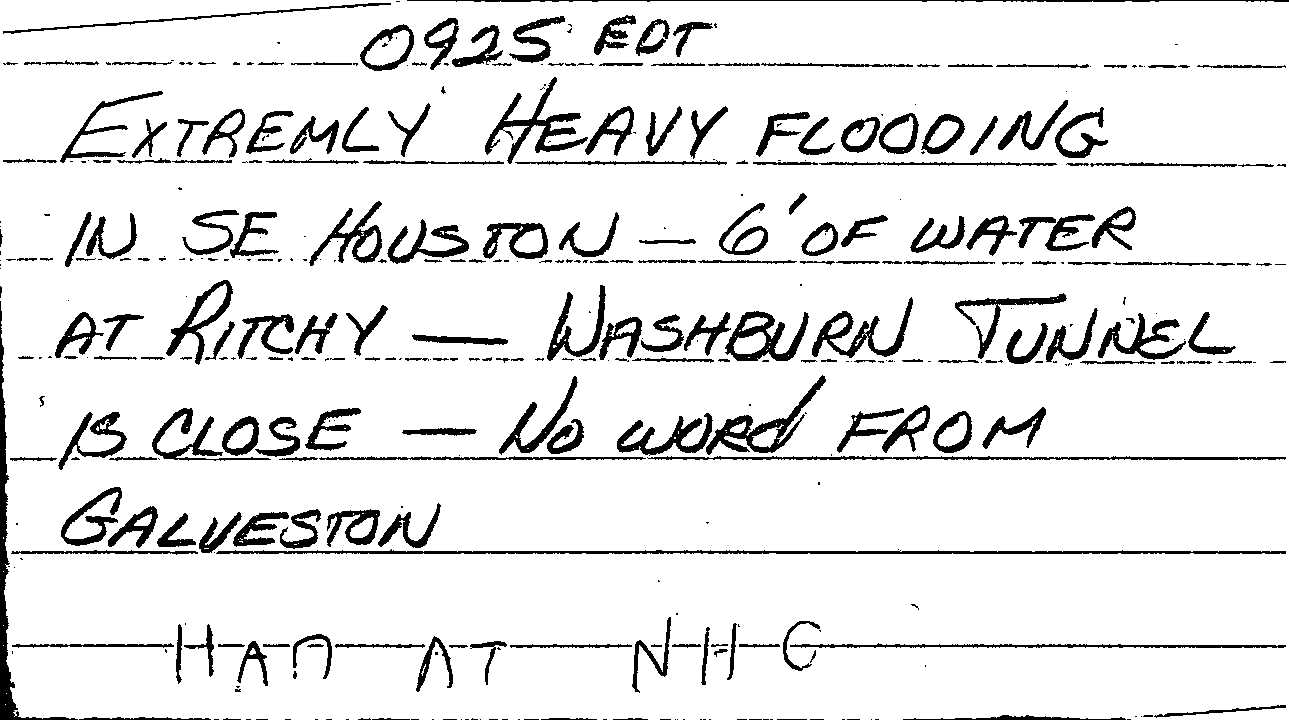 0925 EDT
EXTREMLY HEAVY FLOODING
IN SE HOUSTON – 6' OF WATER
AT RITCHY — WASHBURN TUNNEL
IS CLOSE — NO WORD FROM
GALVESTON
HAM AT NHC